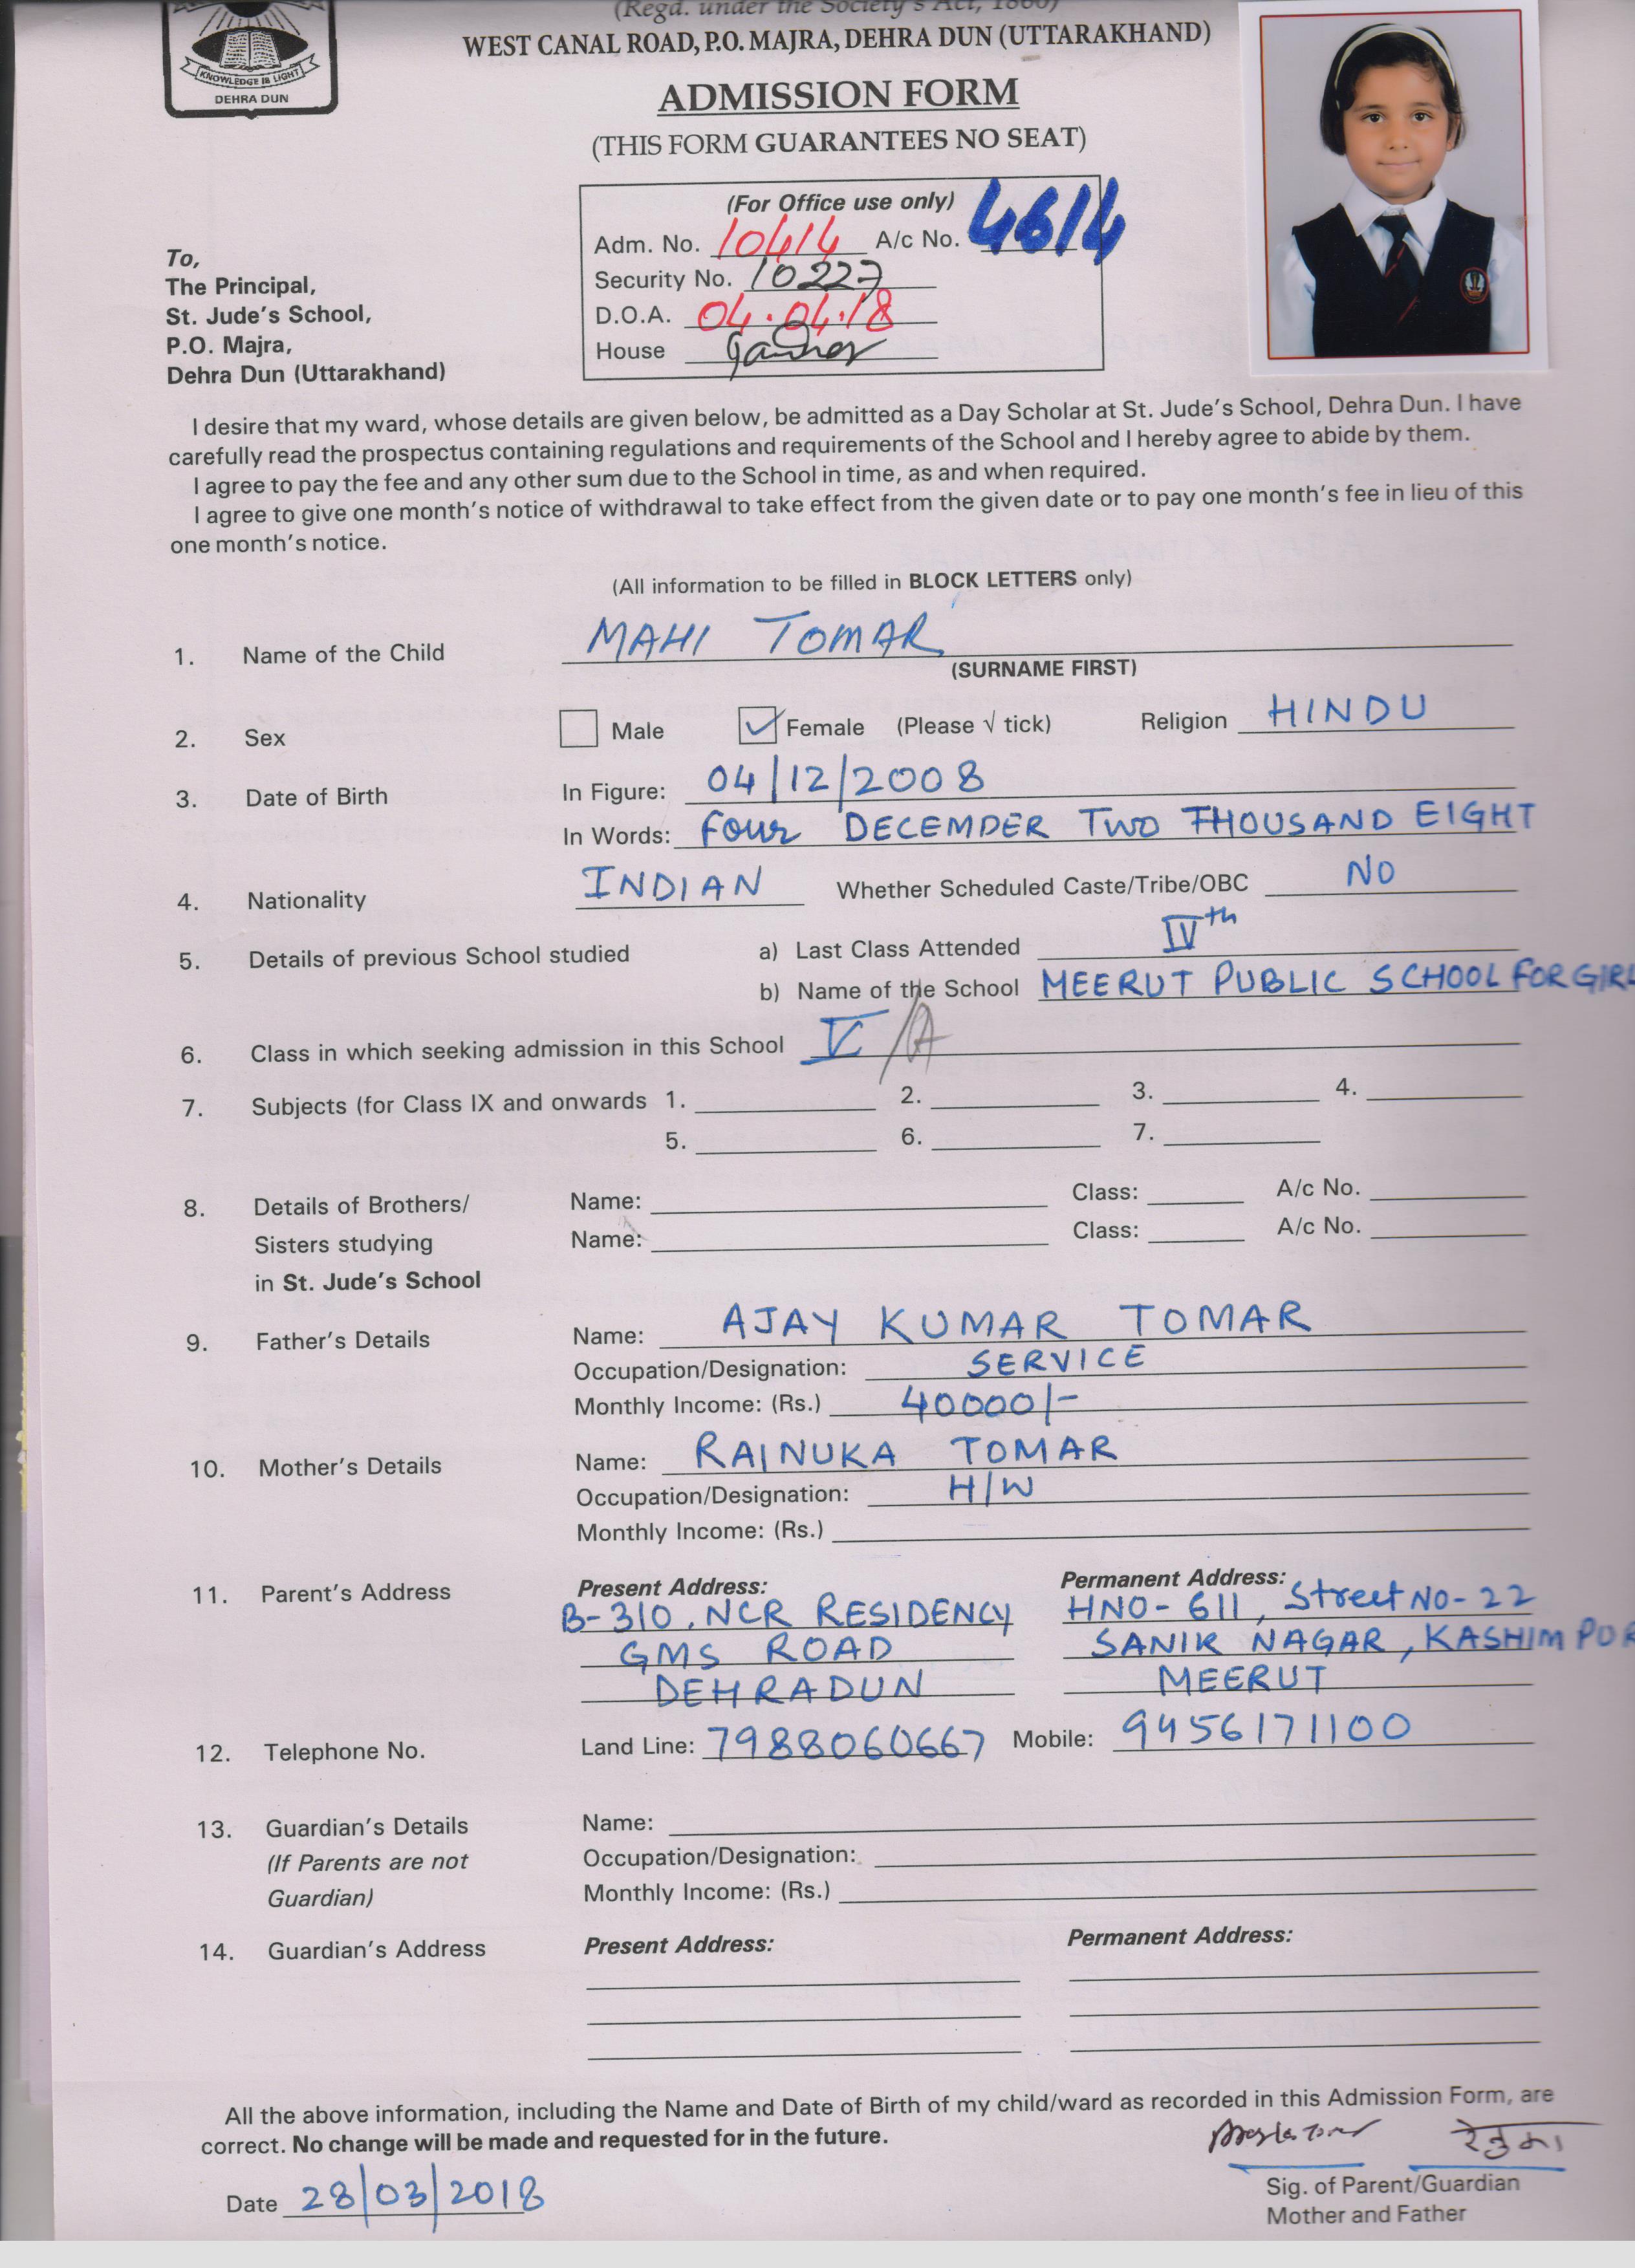 (Regd. under the Society's Act, 1860)
WEST CANAL ROAD, P.O. MAJRA, DEHRA DUN (UTTARAKHAND)
KNOWLEDGE IS LIGHT
DEHRA DUN
ADMISSION FORM
(THIS FORM GUARANTEES NO SEAT)
(For Office use only)
Adm. No. 10414 A/c No. 4614
Security No. 10227
D.O.A. 04.04.18
House
To,
The Principal,
St. Jude's School,
P.O. Majra,
Dehra Dun (Uttarakhand)
I desire that my ward, whose details are given below, be admitted as a Day Scholar at St. Jude's School, Dehra Dun. I have
carefully read the prospectus containing regulations and requirements of the School and I hereby agree to abide by them.
I agree to pay the fee and any other sum due to the School in time, as and when required.
I agree to give one month's notice of withdrawal to take effect from the given date or to pay one month's fee in lieu of this
one month's notice.
(All information to be filled in BLOCK LETTERS only)
1. Name of the Child MAHI TOMAR
(SURNAME FIRST)
2. Sex Male ✓ Female (Please √ tick) Religion HINDU
3. Date of Birth In Figure: 04/12/2008
In Words: Four DECEMDER TWO THOUSAND EIGHT
4. Nationality INDIAN Whether Scheduled Caste/Tribe/OBC NO
5. Details of previous School studied a) Last Class Attended IVth
b) Name of the School MEERUT PUBLIC SCHOOL FOR GIRL
6. Class in which seeking admission in this School V/A
7. Subjects (for Class IX and onwards 1. 2. 3. 4.
5. 6. 7.
8. Details of Brothers/ Name: Class: A/c No.
Sisters studying Name: Class: A/c No.
in St. Jude's School
9. Father's Details Name: AJAY KUMAR TOMAR
Occupation/Designation: SERVICE
Monthly Income: (Rs.) 40000/-
10. Mother's Details Name: RAINUKA TOMAR
Occupation/Designation: H/W
Monthly Income: (Rs.)
11. Parent's Address Present Address: Permanent Address:
B-310, NCR RESIDENCY HNO-611, Street NO-22
GMS ROAD SANIK NAGAR, KASHIMPOR
DEHRADUN MEERUT
12. Telephone No. Land Line: 7988060667 Mobile: 9456171100
13. Guardian's Details Name:
(If Parents are not Occupation/Designation:
Guardian) Monthly Income: (Rs.)
14. Guardian's Address Present Address: Permanent Address:
All the above information, including the Name and Date of Birth of my child/ward as recorded in this Admission Form, are
correct. No change will be made and requested for in the future.
Date 28/03/2018
Sig. of Parent/Guardian
Mother and Father